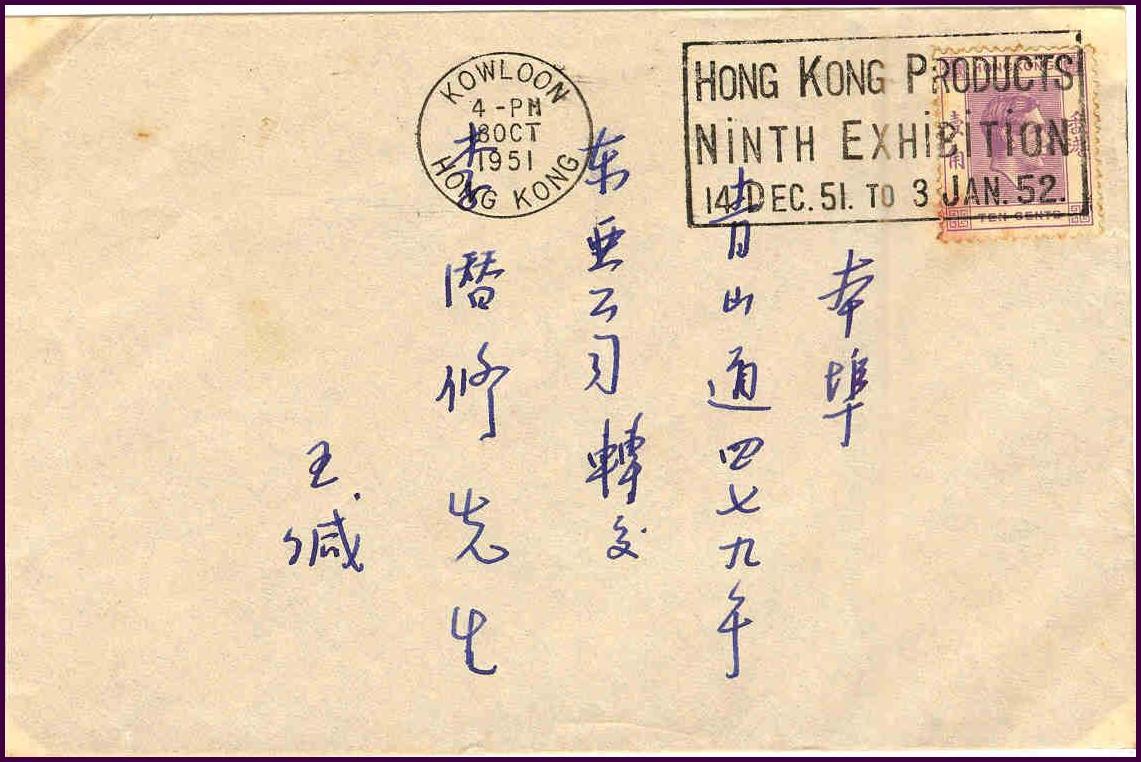 KOWLOON
4-PM
OCT
1951
HONG KONG
HONG KONG PRODUCTS
NINTH EXHIBITION
14 DEC. 51. TO 3 JAN. 52.
香港
壹角
TEN CENTS
本埠
青山道四七九
东亜公司轉交
修先生
王缄